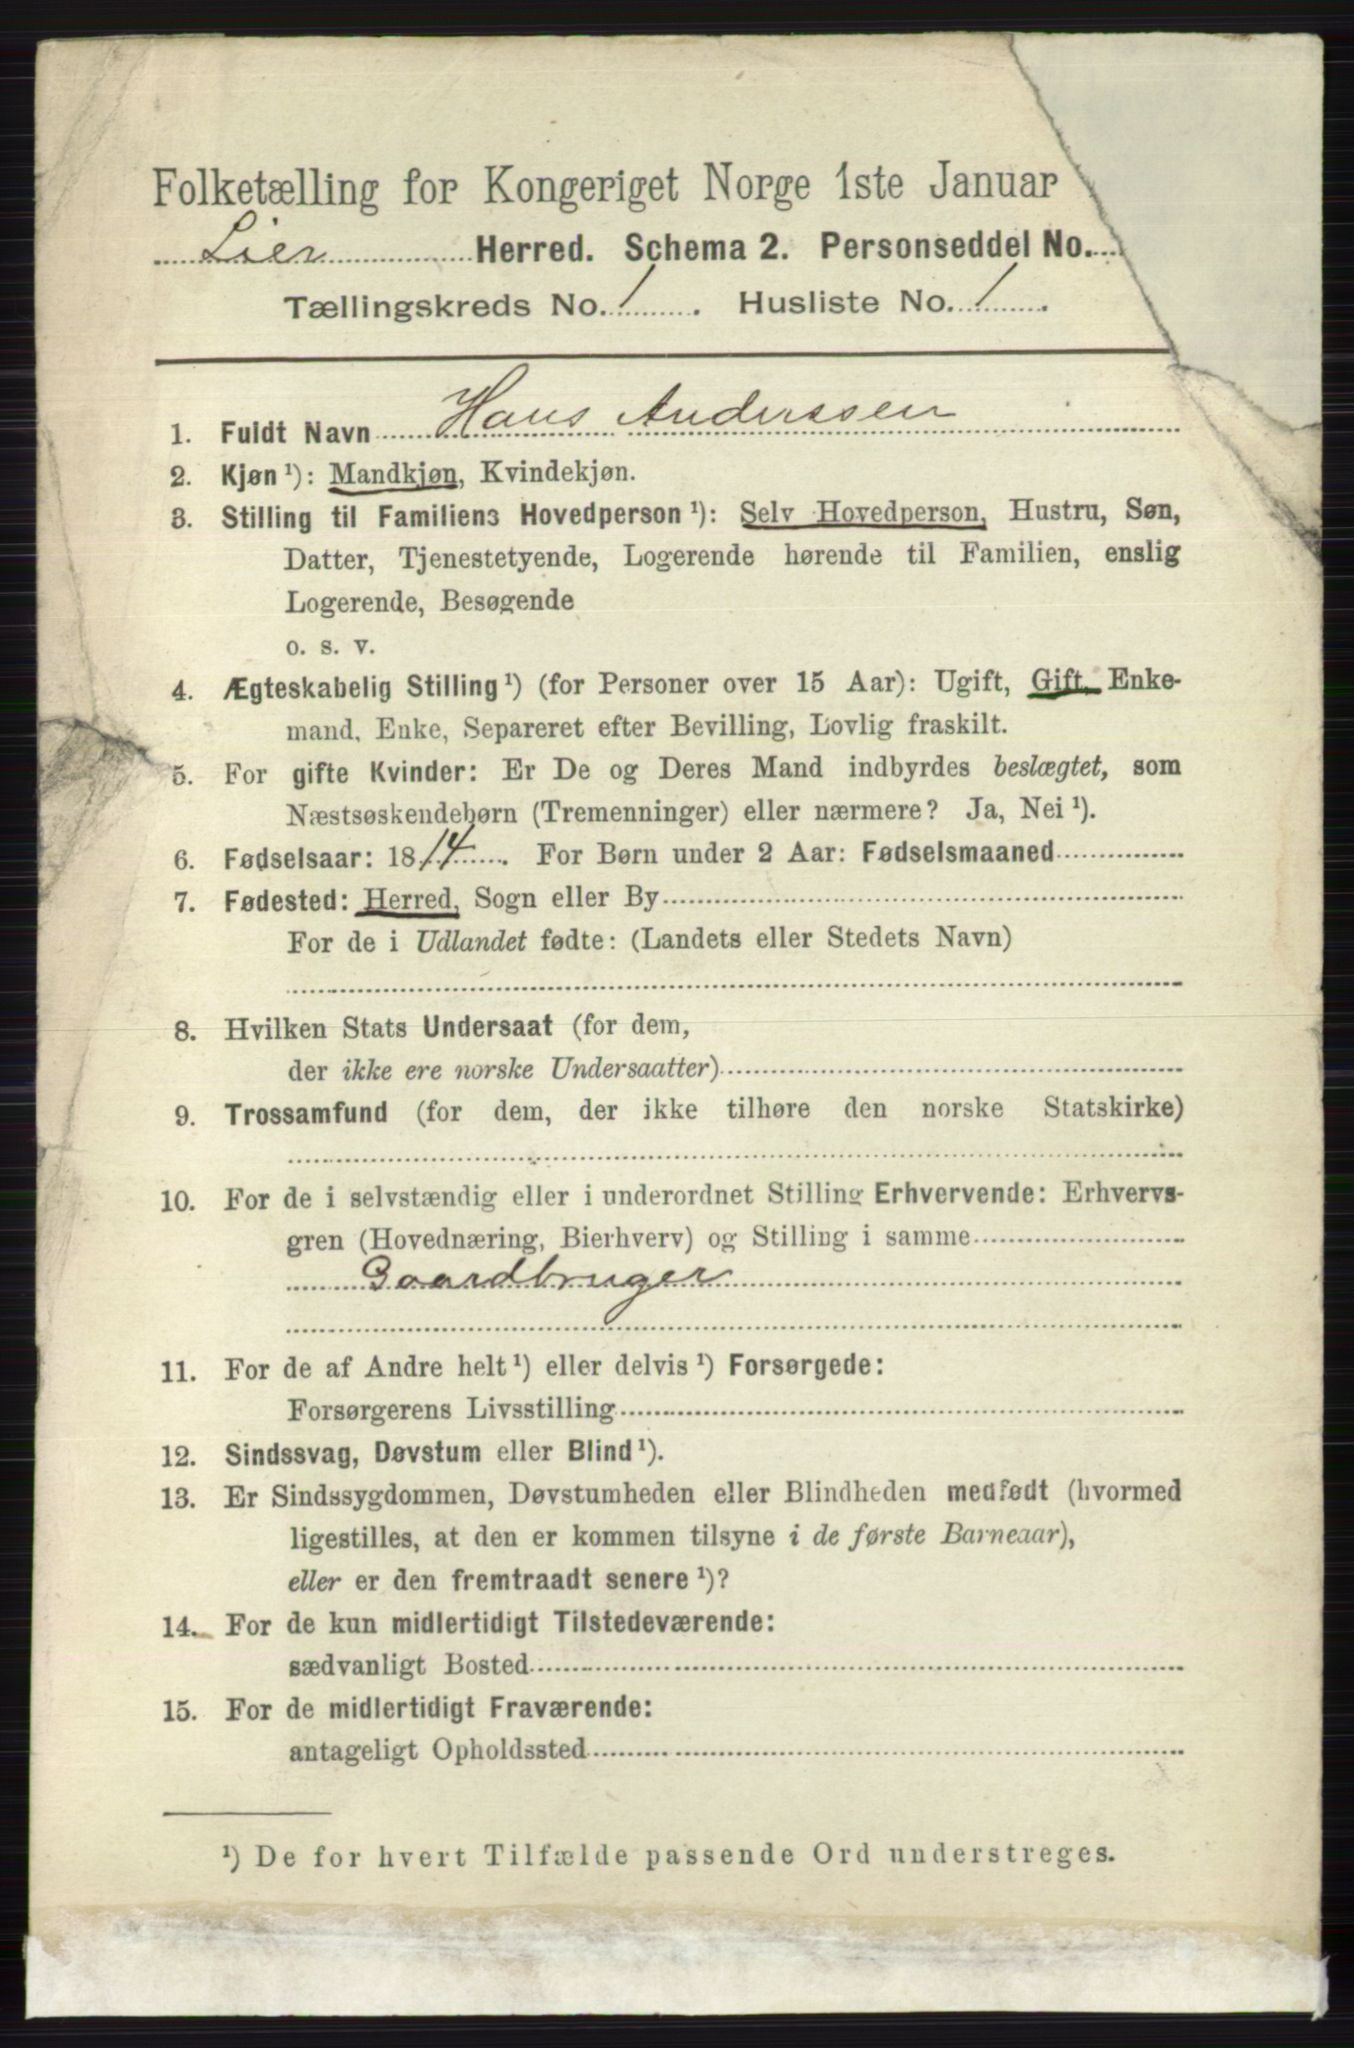 Folketælling for Kongeriget Norge 1ste Januar
Lier Herred. Schema 2. Personseddel No.
Tællingskreds No. 1. Husliste No. 1.
1. Fuldt Navn Hans Anderssen
2. Kjøn¹): Mandkjøn, Kvindekjøn.
3. Stilling til Familiens Hovedperson¹): Selv Hovedperson, Hustru, Søn,
Datter, Tjenestetyende, Logerende hørende til Familien, enslig
Logerende, Besøgende
o. s. v.
4. Ægteskabelig Stilling¹) (for Personer over 15 Aar): Ugift, Gift, Enke-
mand, Enke, Separeret efter Bevilling, Lovlig fraskilt.
5. For gifte Kvinder: Er De og Deres Mand indbyrdes beslægtet, som
Næstsøskendebørn (Tremenninger) eller nærmere? Ja, Nei¹).
6. Fødselsaar: 1814. For Børn under 2 Aar: Fødselsmaaned
7. Fødested: Herred, Sogn eller By
For de i Udlandet fødte: (Landets eller Stedets Navn)
8. Hvilken Stats Undersaat (for dem,
der ikke ere norske Undersaatter)
9. Trossamfund (for dem, der ikke tilhøre den norske Statskirke)
10. For de i selvstændig eller i underordnet Stilling Erhvervende: Erhvervs-
gren (Hovednæring, Bierhverv) og Stilling i samme
Gaardbruger
11. For de af Andre helt¹) eller delvis¹) Forsørgede:
Forsørgerens Livsstilling
12. Sindssvag, Døvstum eller Blind¹).
13. Er Sindssygdommen, Døvstumheden eller Blindheden medfødt (hvormed
ligestilles, at den er kommen tilsyne i de første Barneaar),
eller er den fremtraadt senere¹)?
14. For de kun midlertidigt Tilstedeværende:
sædvanligt Bosted
15. For de midlertidigt Fraværende:
antageligt Opholdssted
¹) De for hvert Tilfælde passende Ord understreges.